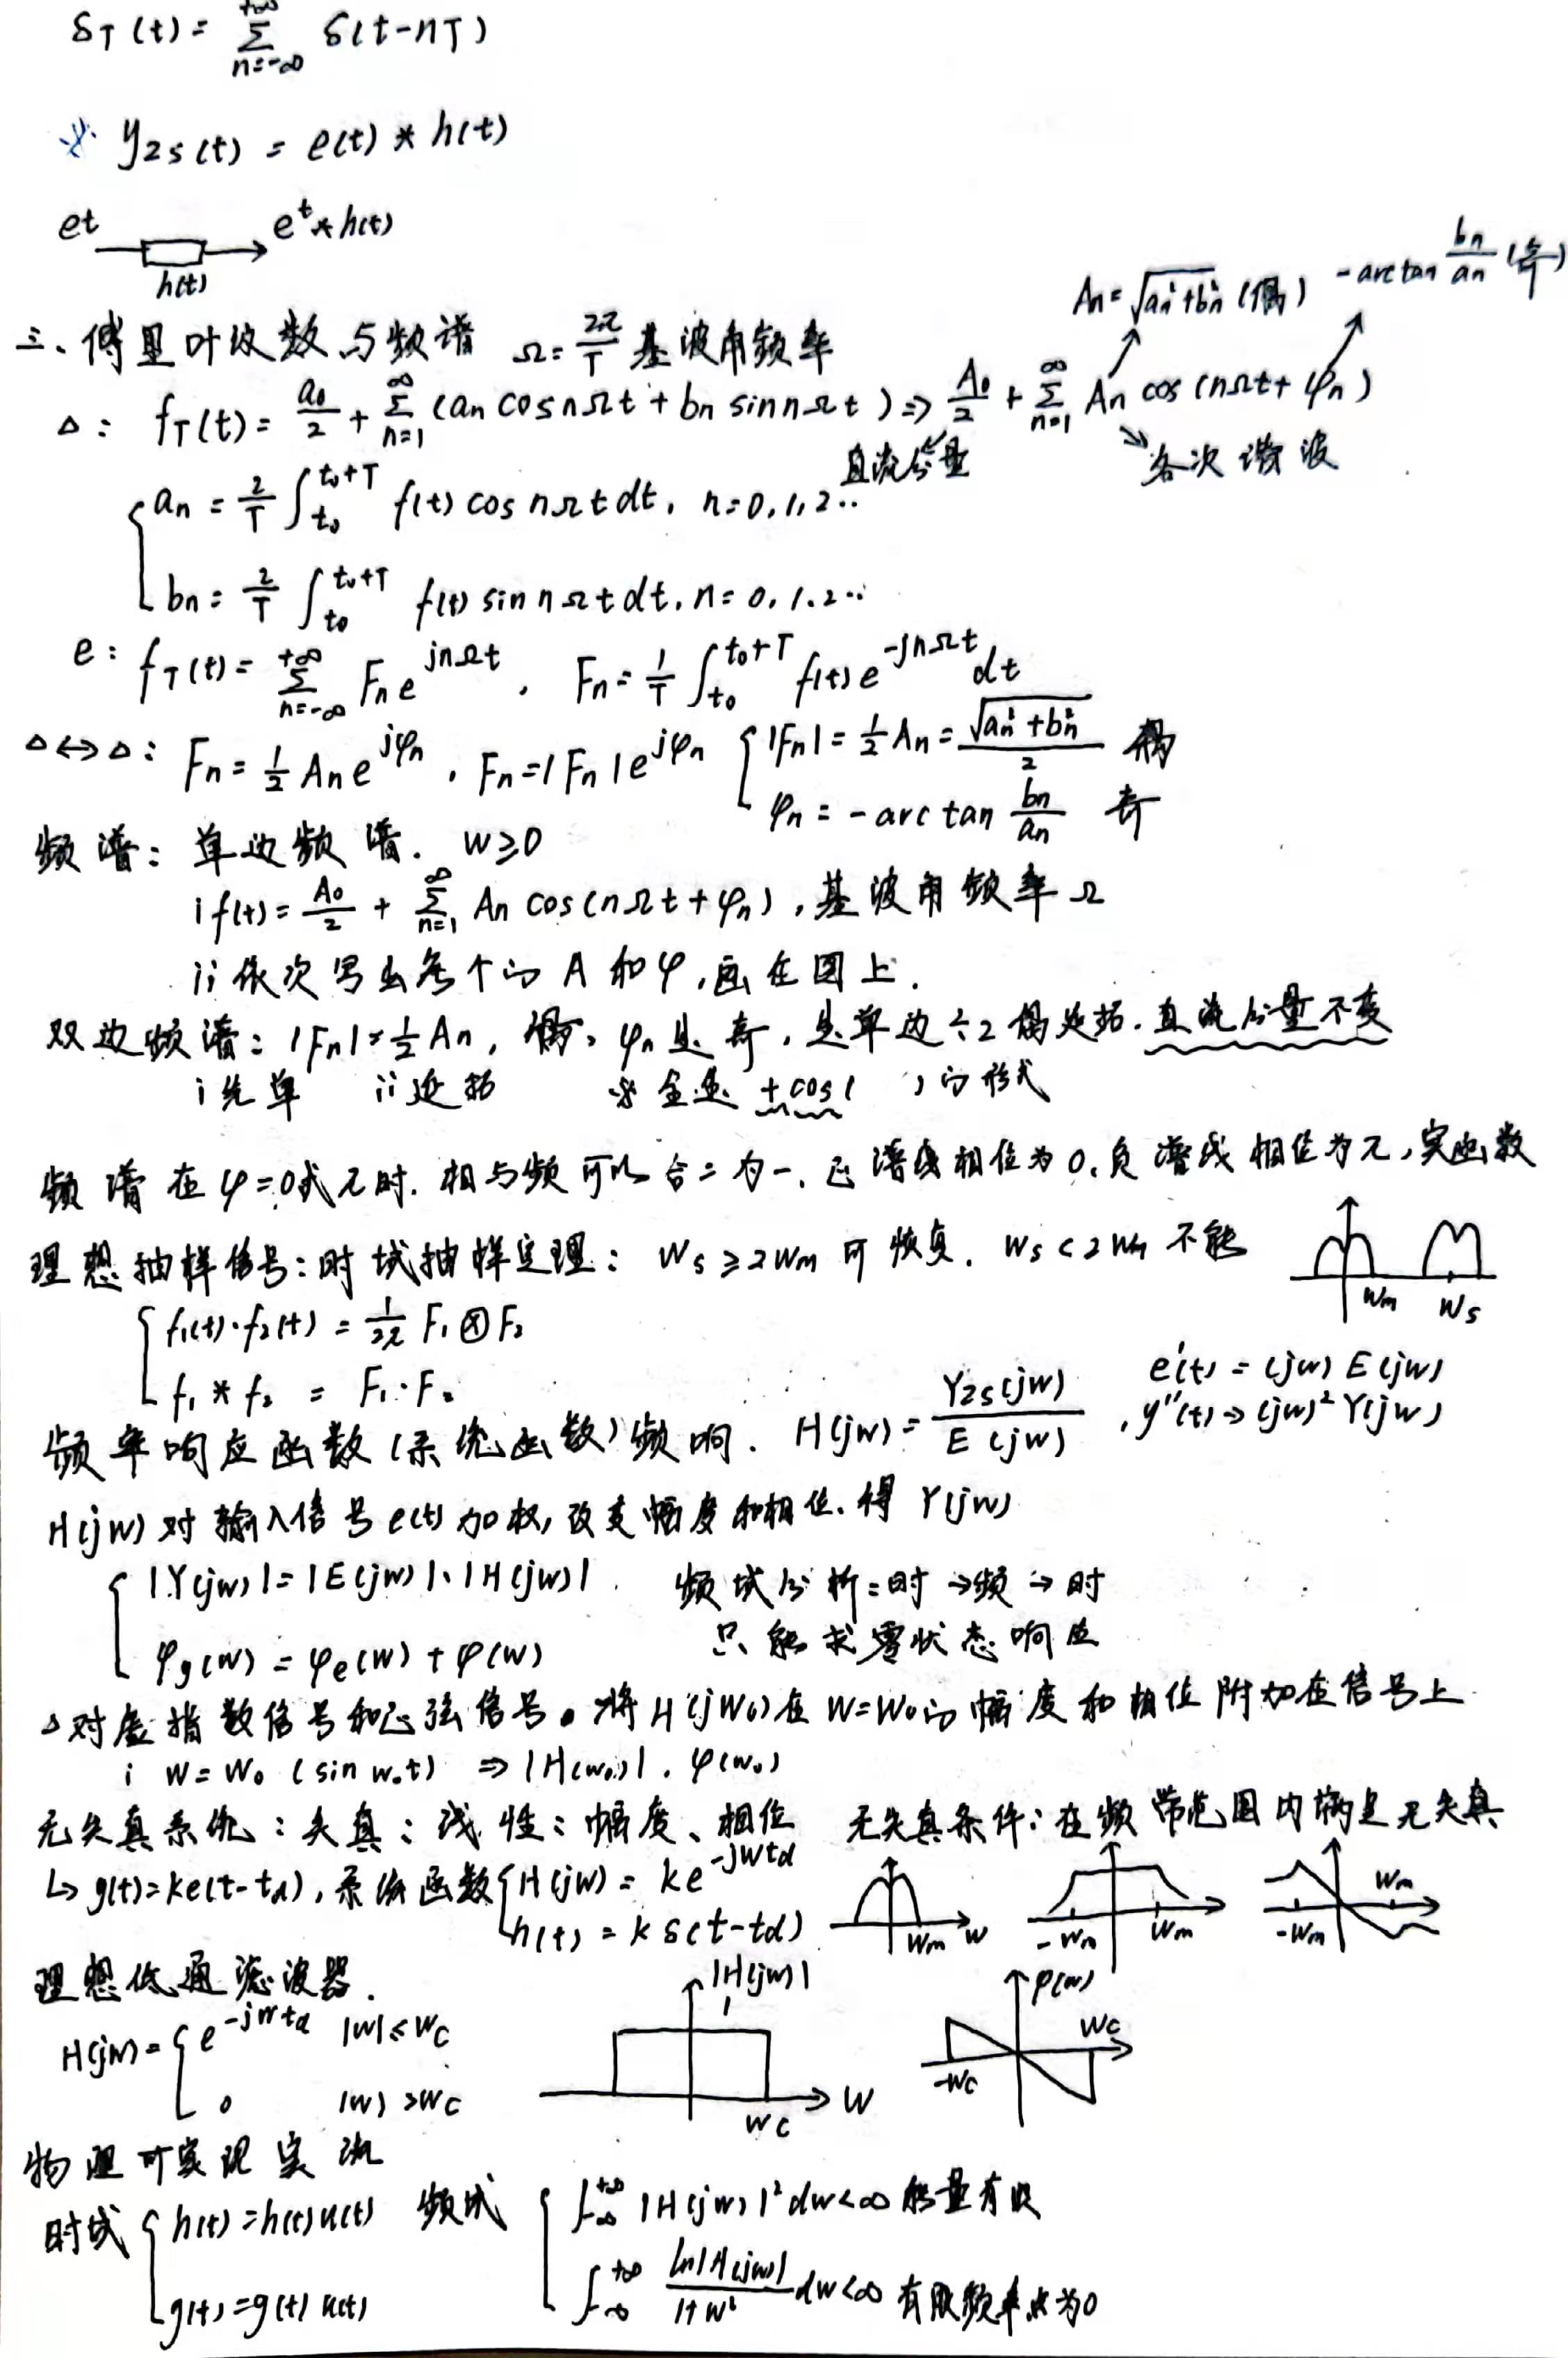 δT(t) = Σ_{n=-∞}^{+∞} δ(t-nT)
※ yzs(t) = e(t) * h(t)
et → h(t) → e^t * h(t)
An = √(an²+bn²) (偶) -arctan bn/an (奇)
三、傅里叶级数与频谱 Ω = 2π/T 基波角频率
△: fT(t) = a0/2 + Σ_{n=1}^{∞} (an cos nΩt + bn sin nΩt) ⇒ A0/2 + Σ_{n=1}^{∞} An cos(nΩt + φn)
直流分量 各次谐波
an = 2/T ∫_{t0}^{t0+T} f(t) cos nΩt dt, n=0,1,2…
bn = 2/T ∫_{t0}^{t0+T} f(t) sin nΩt dt, n=0,1,2…
e: fT(t) = Σ_{n=-∞}^{+∞} Fn e^{jnΩt}, Fn = 1/T ∫_{t0}^{t0+T} f(t) e^{-jnΩt} dt
△↔△: Fn = ½ An e^{jφn}, Fn = |Fn| e^{jφn} { |Fn| = ½ An = √(an²+bn²)/2 偶
φn = -arctan bn/an 奇
频谱: 单边频谱. w≥0
i f(t) = A0/2 + Σ_{n=1}^{∞} An cos(nΩt + φn), 基波角频率Ω
ii 依次写出各个的 A 和 φ, 画在图上.
双边频谱: |Fn| = ½ An, 偶, φn 是奇, 是单边÷2偶延拓. 直流分量不变
i 先单 ii 延拓 ※ 全是 +cos( ) 的形式
频谱在 φ=0或π时. 相与频可以合二为一. 正谱线相位为0, 负谱线相位为π, 实函数
理想抽样信号: 时域抽样定理: ws ≥ 2wm 可恢复. ws < 2wm 不能
wm ws
f1(t)·f2(t) = 1/2π F1⊛F2
f1 * f2 = F1·F2
e'(t) = (jw) E(jw)
频率响应函数(系统函数)频响. H(jw) = Yzs(jw)/E(jw), y''(t) → (jw)² Y(jw)
H(jw) 对输入信号 e(t) 加权, 改变幅度和相位. 得 Y(jw)
|Y(jw)| = |E(jw)|·|H(jw)| 频域分析: 时→频→时
φy(w) = φe(w) + φ(w) 只能求零状态响应
△对虚指数信号和正弦信号。将 H(jw0) 在 w=w0 的幅度和相位附加在信号上
i w=w0 (sin w0t) ⇒ |H(w0)|. φ(w0)
无失真系统: 失真: 线性: 幅度、相位 无失真条件: 在频带范围内满足无失真
↳ g(t)=ke(t-td), 系统函数 { H(jw) = ke^{-jwtd}
h(t) = kδ(t-td)
wm w -wm wm -wm wm
理想低通滤波器.
H(jw) = { e^{-jwtd} |w| ≤ wc
0 |w| > wc
|H(jw)| 1 wc w
φ(w) -wc wc
物理可实现系统
时域 { h(t) = h(t)u(t) 频域 { ∫_{-∞}^{+∞} |H(jw)|² dw < ∞ 能量有限
g(t) = g(t)u(t) ∫_{-∞}^{+∞} ln|H(jw)|/(1+w²) dw < ∞ 有限频率点为0